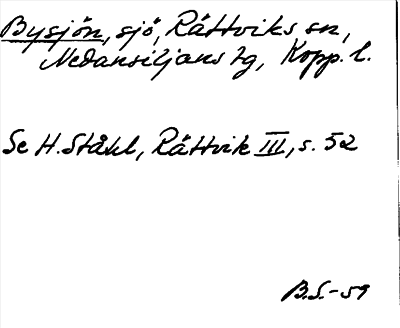 Bysjön, sjö, Rättviks sn,
Nedansiljans tg, Kopp. l.
Se H. Ståhl, Rättvik III, s. 52
B.S. - 59